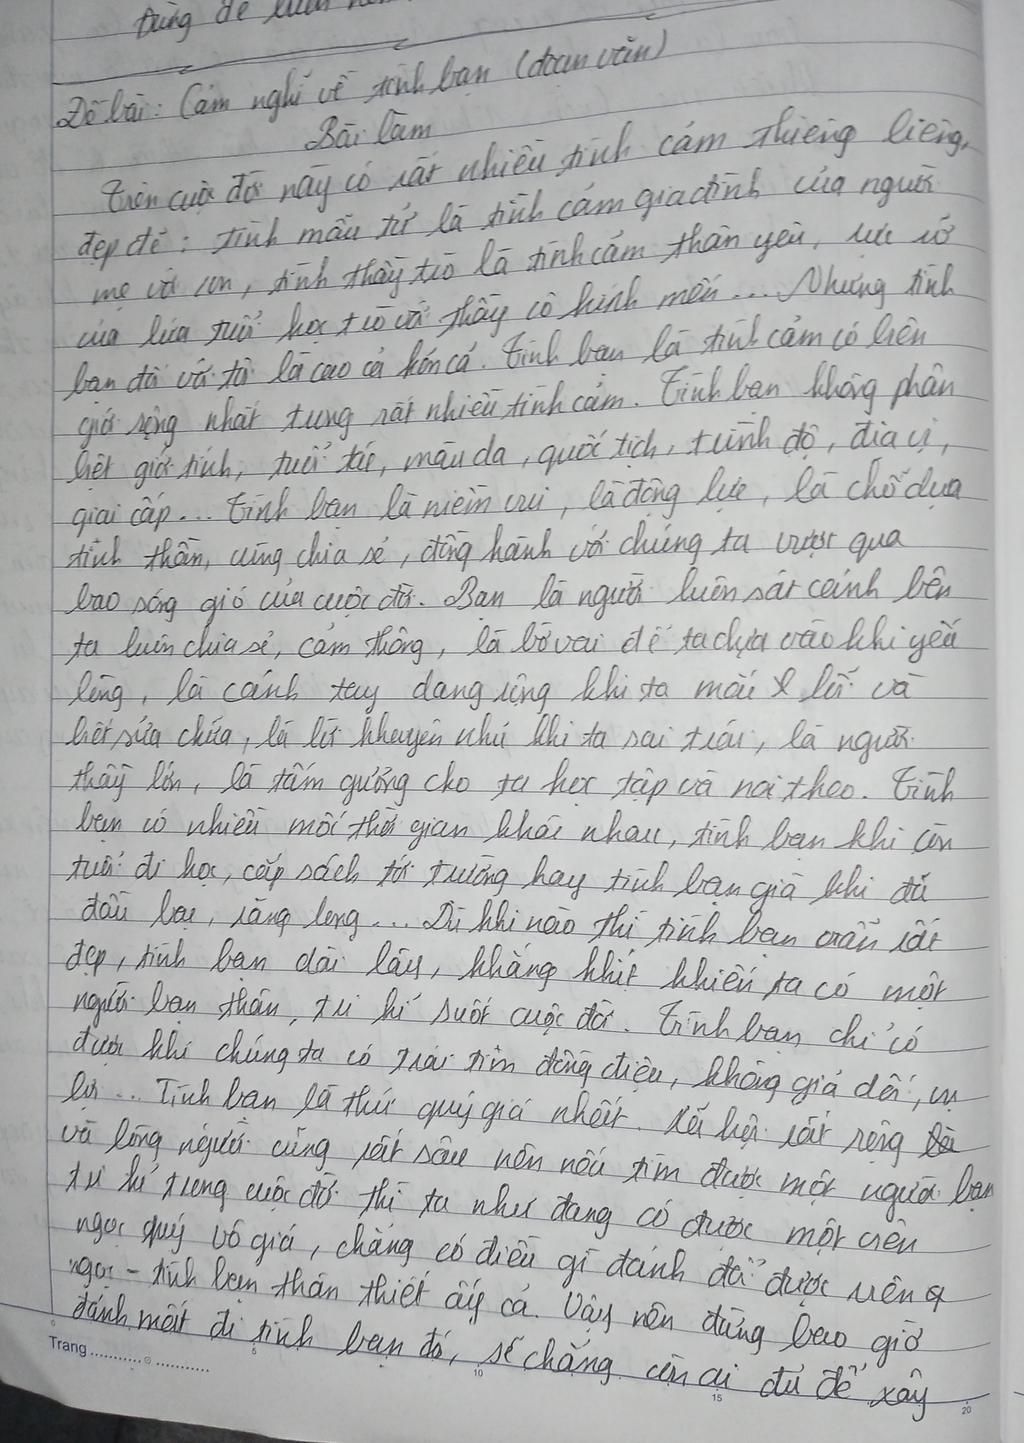 Đừng để
Đề bài: Cảm nghĩ về tình bạn (đoạn văn)
Bài làm
Trên cuộc đời này có rất nhiều tình cảm thiêng liêng,
đẹp đẽ: tình mẫu tử là tình cảm gia đình của người
mẹ với con, tình thầy trò là tình cảm thân yêu, rực rỡ
của lứa tuổi học trò với thầy cô kính mến... Nhưng tình
bạn đối với tôi là cao cả hơn cả. Tình bạn là tình cảm có biên
giới rộng nhất trong rất nhiều tình cảm. Tình bạn không phân
biệt giới tính, tuổi tác, màu da, quốc tịch, trình độ, địa vị,
giai cấp... Tình bạn là niềm vui, là động lực, là chỗ dựa
tinh thần, cùng chia sẻ, đồng hành với chúng ta vượt qua
bao sóng gió của cuộc đời. Bạn là người luôn sát cánh bên
ta luôn chia sẻ, cảm thông, là bờ vai để ta dựa vào khi yếu
lòng, là cánh tay dang rộng khi ta mắc lỗi và
biết sửa chữa, là lời khuyên nhủ khi ta sai trái, là người
thầy lớn, là tấm gương cho ta học tập và noi theo. Tình
bạn có nhiều mốc thời gian khác nhau, tình bạn khi còn
tuổi đi học, cắp sách tới trường hay tình bạn già khi đã
đầu bạc, răng long... Dù khi nào thì tình bạn vẫn rất
đẹp, tình bạn dài lâu, khăng khít khiến ta có một
người bạn thân, tri kỉ suốt cuộc đời. Tình bạn chỉ có
được khi chúng ta có trái tim đồng điệu, không giả dối, vụ
lợi... Tình bạn là thứ quý giá nhất. Xã hội rất rộng
và lòng người cũng rất sâu nên nếu tìm được một người bạn
tri kỉ trong cuộc đời thì ta như đang có được một viên
ngọc quý vô giá, chẳng có điều gì đánh đổi được viên
ngọc - tình bạn thân thiết ấy cả. Vậy nên đừng bao giờ
đánh mất đi tình bạn đó, sẽ chẳng còn ai đủ để xây
Trang
5 10 15 20